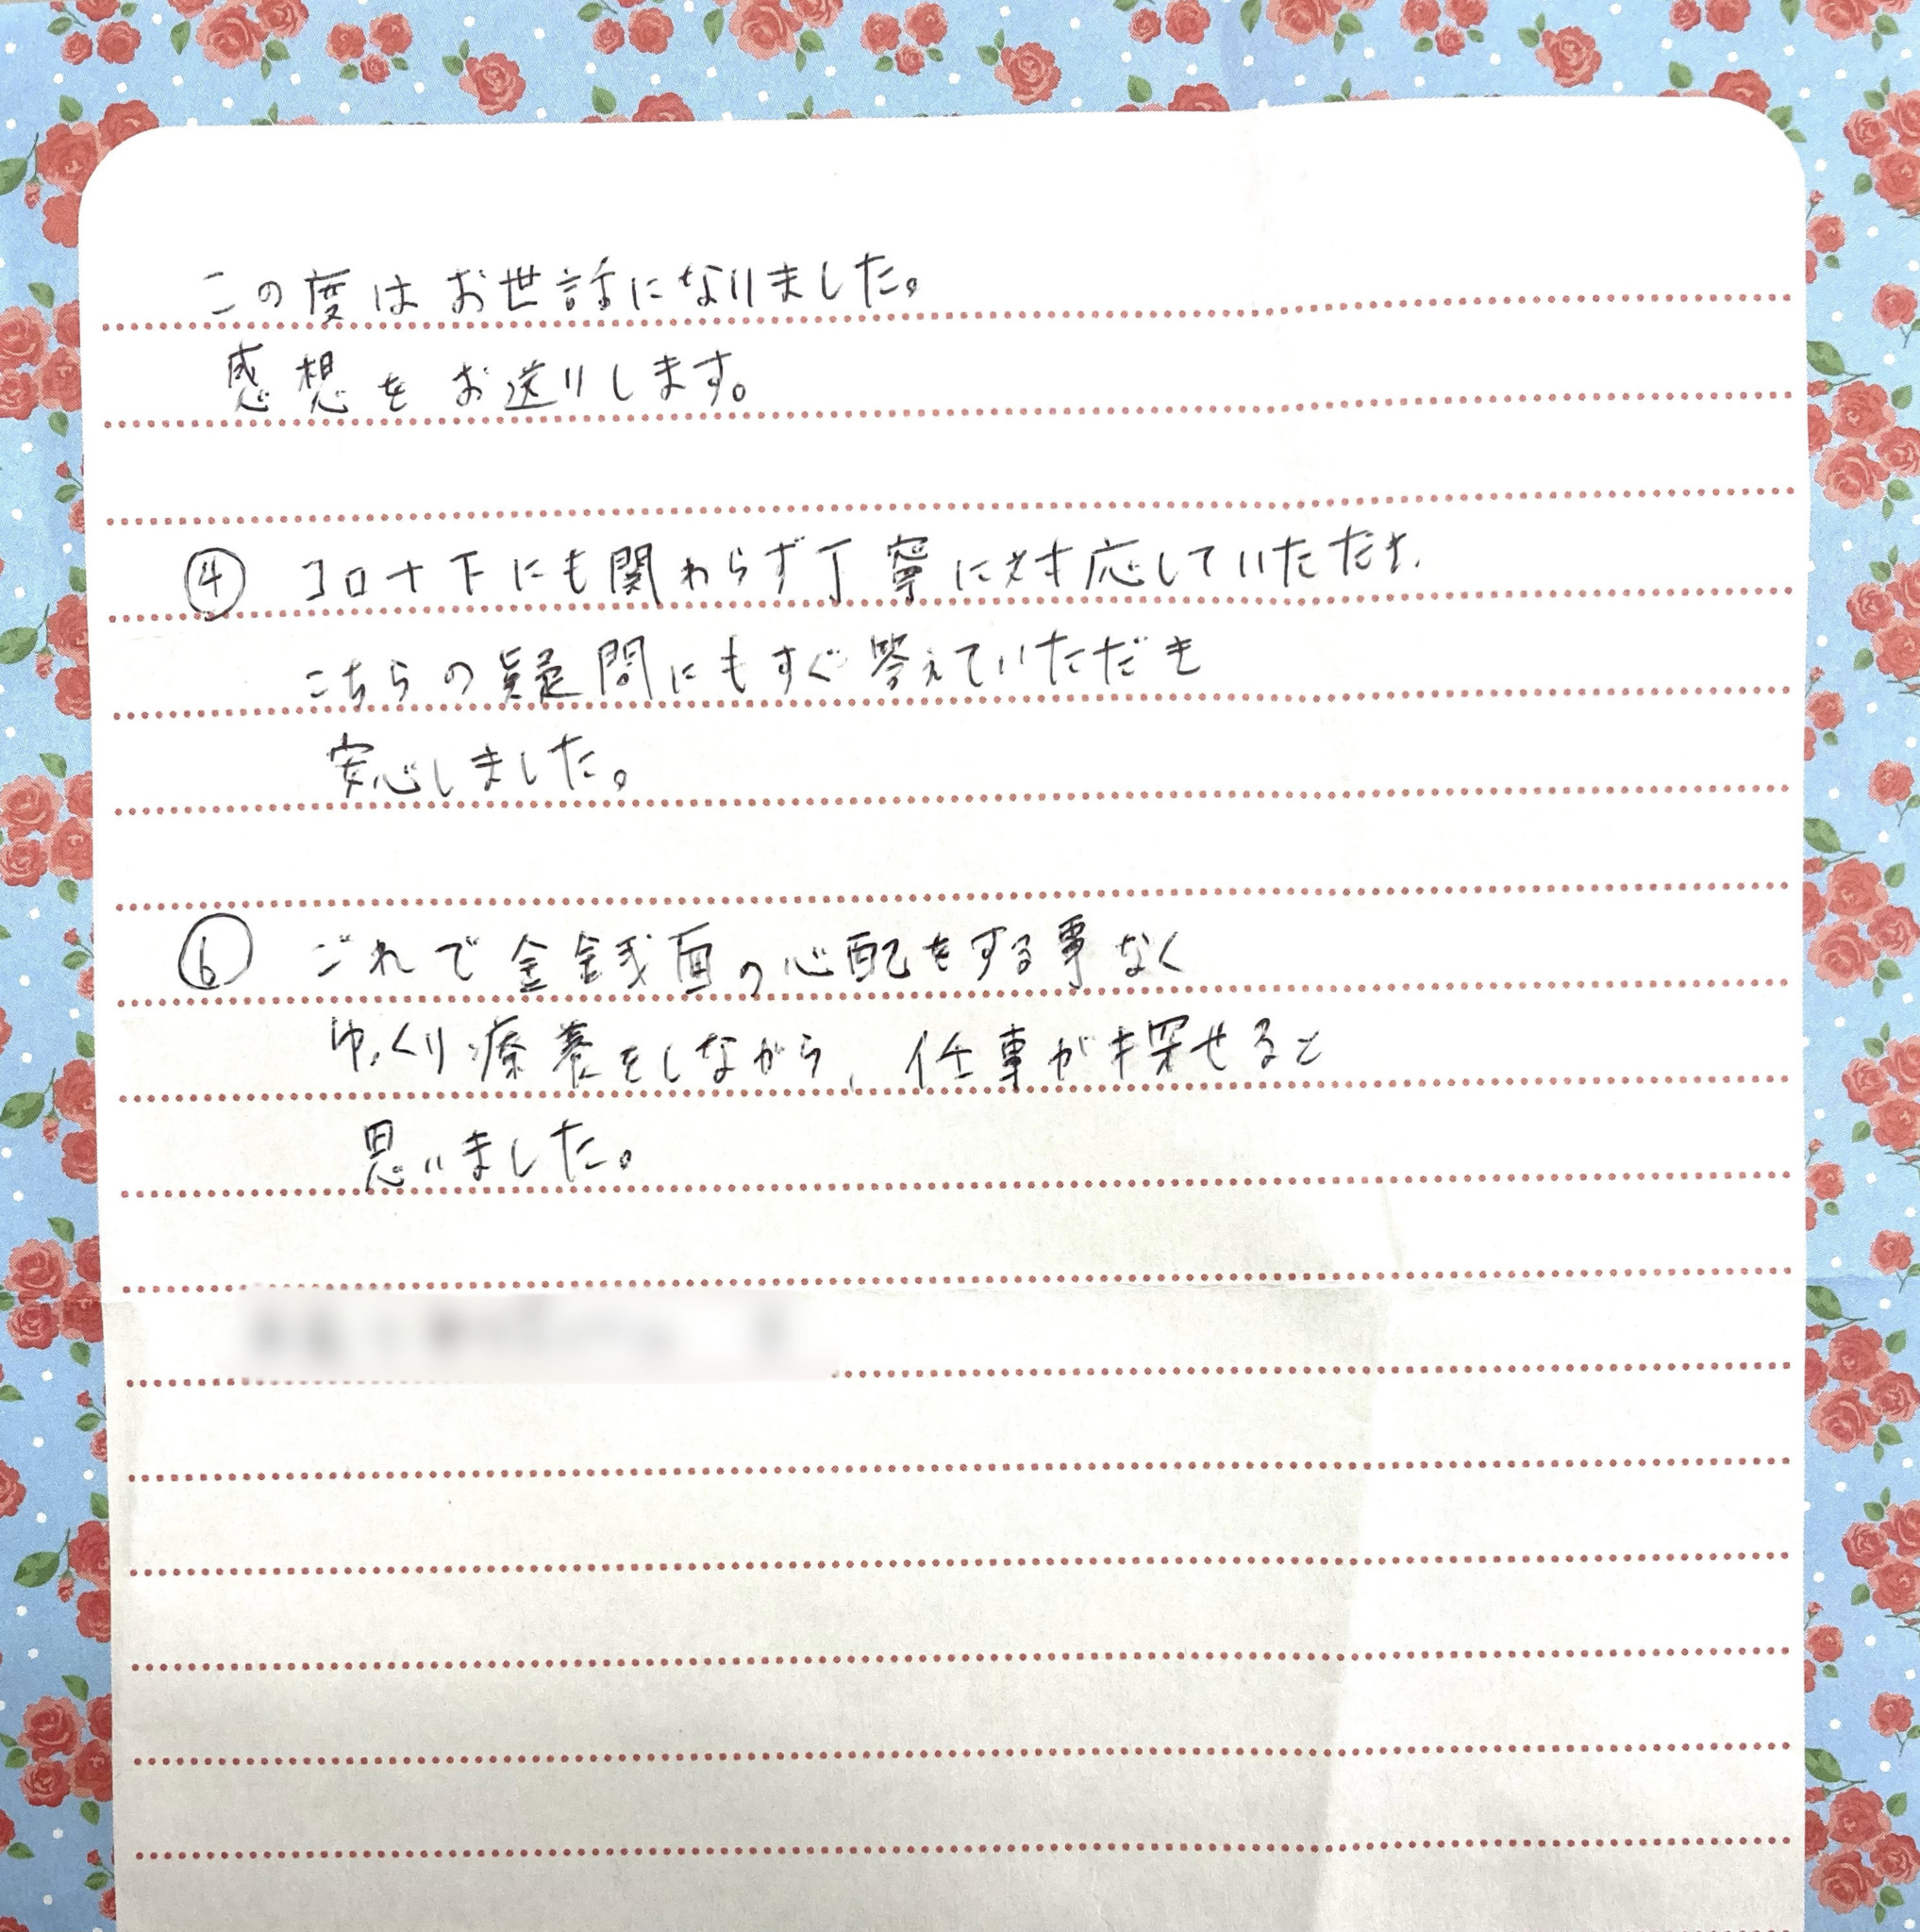 この度はお世話になりました。
感想をお送りします。
④ コロナ下にも関わらず丁寧に対応していただき、
こちらの疑問にもすぐ答えていただき
安心しました。
⑥ これで金銭面の心配をする事なく
ゆっくり療養をしながら、仕事が探せると
思いました。